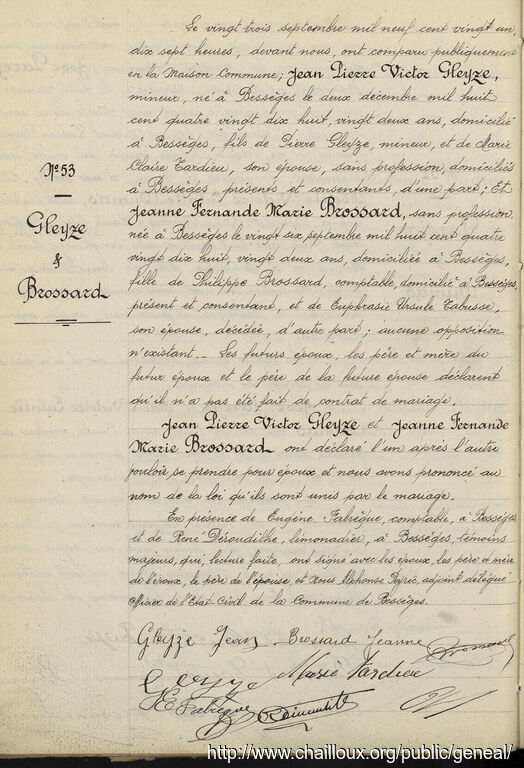 Le vingt trois septembre mil neuf cent vingt un,
dix sept heures, devant nous, ont comparu publiquement
en la Maison Commune; Jean Pierre Victor Gleyze,
mineur, né à Bessèges le deux décembre mil huit
cent quatre vingt dix huit, vingt deux ans, domicilié
à Bessèges, fils de Pierre Gleyze, mineur, et de Marie
Claire Tardieu, son épouse, sans profession, domiciliés
à Bessèges, présents et consentants, d'une part; Et
Jeanne Fernande Marie Brossard, sans profession
née à Bessèges le vingt six septembre mil huit cent quatre
vingt dix huit, vingt deux ans, domiciliée à Bessèges,
fille de Philippe Brossard, comptable, domicilié à Bessèges
présent et consentant, et de Euphrasie Ursule Tabusse,
son épouse, décédée, d'autre part; aucune opposition
n'existant._ Les futurs époux, les père et mère du
futur époux et le père de la future épouse déclarent
qu'il n'a pas été fait de contrat de mariage.
Jean Pierre Victor Gleyze et Jeanne Fernande
Marie Brossard ont déclaré l'un après l'autre
vouloir se prendre pour époux et nous avons prononcé au
nom de la loi qu'ils sont unis par le mariage.
En présence de Eugène Fabrègue, comptable, à Bessèges
et de René Deroudilhe, limonadier, à Bessèges, témoins
majeurs, qui, lecture faite, ont signé avec les époux, les père et mère
de l'époux, le père de l'épouse, et Nous Alphonse Peyric, adjoint délégué
Officier de l'Etat Civil de la Commune de Bessèges.
N° 53
Gleyze
&
Brossard
Gleyze Jean Brossard Jeanne
Gleyze Marie Tardieu
E Fabrègue
http://www.chailloux.org/public/geneal/